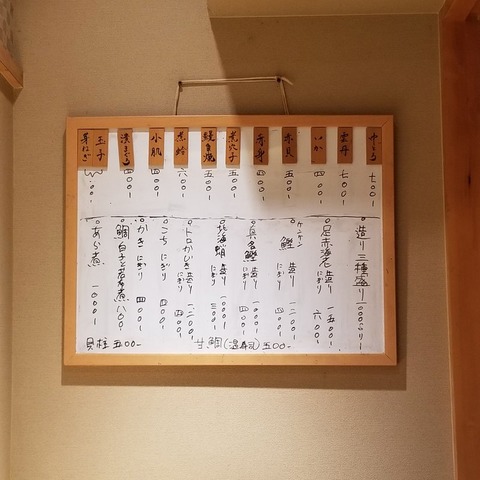 中とろ 七〇〇-
雲丹 七〇〇-
いか 四〇〇-
赤貝 五〇〇-
赤身 四〇〇-
煮穴子 五〇〇-
五〇〇-
煮蛤 六〇〇-
小肌 四〇〇-
漬まぐろ 四〇〇-
玉子
芽ねぎ
〇〇-
造り三種盛り 一〇〇〇より-
足赤海老 造り 一五〇〇-
にぎり 六〇〇-
ケンケン鰹 造り 一二〇〇-
にぎり 四〇〇-
造り 一〇〇〇-
にぎり 四〇〇-
北海蛸 造り 一〇〇〇-
にぎり 三〇〇-
トロかじき 造り 一二〇〇-
にぎり 四〇〇-
こち にぎり 四〇〇-
かき にぎり 四〇〇-
鯛白子と若布煮 八〇〇
あら煮 一〇〇〇-
甘鯛(温寿司)五〇〇-
貝柱 五〇〇-